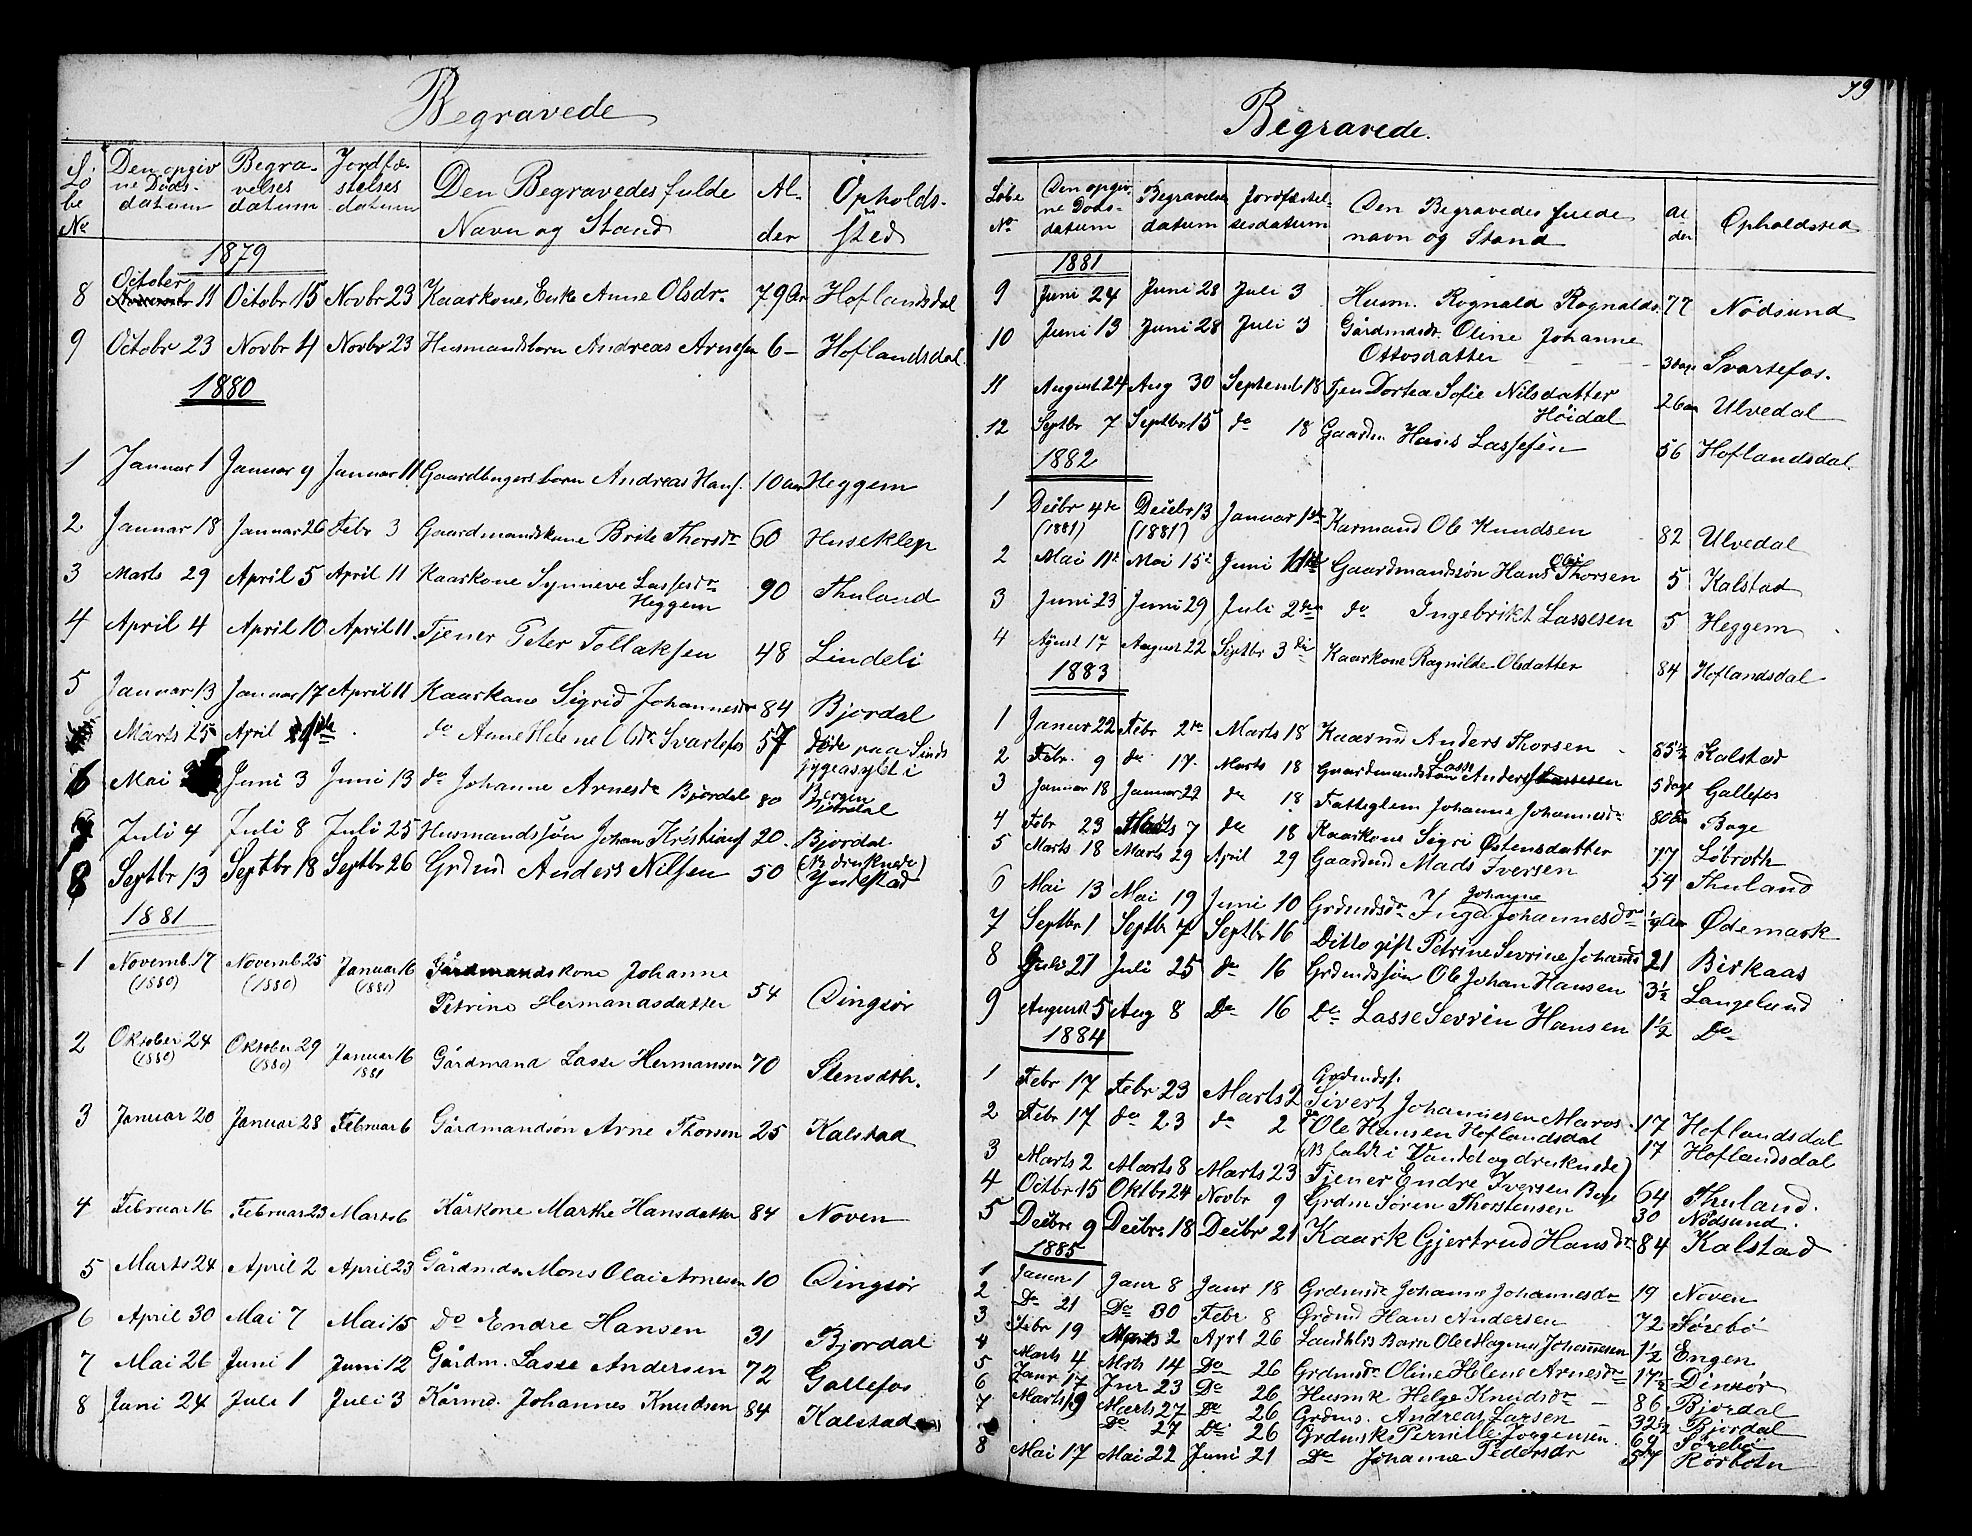 Begravede
Löbe No | Den opgivne Döds-datum | Begravelses datum | Jordfæstelses datum | Den Begravedes fulde Navn og Stand | Alder | Opholdssted
1879
8 October 11 Octobr 15 Novbr 23 Kaarkone, Enke Anne Olsdr 79 Aar Hoflandsdal
9 Octobr 23 Novbr 4 Novbr 23 Husmandsbarn Andreas Arnesen 6 - Hoflandsdal
1880
1 Januar 1 Januar 9 Januar 11 Gaardbrugers barn Andreas Hans. 10 Aar Heggem
2 Januar 18 Januar 26 Febr 3 Gaardmandskone Brite Thorsdr 60 Huseklep
3 Marts 29 April 5 April 11 Kaarkone Synneve Lassesdr
Heggem 90 Thuland
4 April 4 April 10 April 11 Tjener Peter Tollaksen 48 Lindeli
5 Januar 13 Januar 17 April 11 Kaarkone Sigrid Johannesdr 84 Bjordal
Marts 25 April do Anne Helene Olsdr Svartefos 57 döde paa Sinds
sygeasylet i
Bergen
6 Mai Juni 3 Juni 13 do Johanne Arnesdr Bjordal 80 Bjordal
7 Juli 4 Juli 8 Juli 25 Husmandssön Johan Kristians 20. Bjordal
(NB druknede)
8 Septbr 13 Septbr 18 Septbr 26 Grdmd Anders Nilsen 50 Yndestad
1881
1 Novemb. 17 Novemb. 25 Januar 16 Gårdmandskone Johanne
(1880) (1880) (1881)
Petrine Hermandsdatter 54 Dingsör
2 Oktober 24 Oktober 29 Januar 16 Gårdmand Lasse Hermansen 70 Stensdth.
(1880) (1880) 1881
3 Januar 20 Januar 28 Februar 6 Gårdmandsön Arne Thorsen 25 Kalstad
4 Februar 16 Februar 23 Marts 6 Kårkone Marthe Hansdatter 84 Noven
5 Marts 24 April 2 April 23 Gårdmds Mons Olai Arnesen 10 Dingsör
6 April 30 Mai 7 Mai 15 Do Endre Hansen 31 Bjordal
7 Mai 26 Juni 1 Juni 12 Gårdm. Lasse Andersen 72 Gallefos
8 Juni 24 Juli 1 Juli 3 Kårmd. Johannes Knudsen 84 Kalstad
79
Begravede.
Löbe No | Den opgivne Döds-datum | Begravelses datum | Jordfæstelsesdatum | Den Begravedes fulde navn og Stand | Alder | Opholdssted
1881
9 Juni 24 Juni 28 Juli 3 Husm. Rognald Rognalds. 77 Nödsund
10 Juni 13 Juni 28 Juli 3 Gårdmdsdr. Oline Johanne
Ottosdatter - - - 3 dage Svartefos.
11 August 24 Aug 30 Septemb 18 Tjen Dortea Sofie Nilsdatter
Höidal 26 aar Ulvedal
12 Septbr 7 Septbr 15 do 18 Gaardm Hans Lassesen 56 Hoflandsdal.
1882
1 Decbr 4de Decbr 13 Januar 1ste Karmand Ole Knudsen 82 Ulvedal
(1881) (1881)
2 Mai 11te Mai 15de Juni 11te Gaardmandssön Hans Olai Thorsen 5 Kalstad
3 Juni 23 Juni 29 Juli 2den do Ingebrikt Lassesen 5 Heggem
4 August 17 August 22 Septbr 3die Kaarkone Ragnilde Olsdatter 84 Hoflandsdal
1883
1 Januar 22 Febr 2den Marts 18 Kaarmd Anders Thorsen - 85½ Kalstad
2 Febr. 9 do 17. Marts 18 Gaardmandssön Lasse Anders. Lassesen 5 dage Gallefos
3 Januar 18 Januar 22 do 18 Fattiglem Johanne Johannesdr 80 Aar Bage
4 Febr 23 Marts 7 do 18 Kaarkone Sigri Östensdatter 77 Löbroth
5 Marts 18 Marts 29 April 29 Gaardmd Mads Iversen 54 Thuland
6 Mai 13 Mai 19 Juni 10 Grdmdsdr Inga Johanne Johannesdr Ödemark
7 Septbr 1 Septbr 7 Septbr 16 Ditto gift Petrine Sevrine Johannes 21 Birkaas
8 Juli 21 Juli 25 do 16 Grdmdssön Ole Johan Hansen 3½ Langelund
9 August 5 Aug 8 Do 16 Do Lasse Sevrin Hansen 1½ Do
1884
1 Febr 17 Febr 23 Marts 2 Grdmdss. Sivert Johannesen Maros 17 Hoflandsdal
2 Febr 17 do 23 do 2 do Ole Hansen Hoflandsdal 17 Hoflandsdal
(NB faldt i Vandet og druknede)
3 Marts 2 Marts 8 Marts 23 Tjener Endre Iversen Bage 64 Thuland.
4 Octbr 15 Oktbr 24 Novbr 9 Grdm Sören Thorstensen 30 Nödsund.
5 Decbr 9 Decbr 18 Decbr 21 Kaark Gjertrud Hansdr 84 Kalstad
1885
1 Januar 1 Janr 8 Janr 18 Grdmsdr Johanne Johannesdr 19 Noven
2 Do 21 Do 30 Febr 8 Grdmd Hans Andersen 72 Sörebö
3 Febr 19 Marts 2 Aprl 26 Landhls Barn Ole Magnus Johannesen 1½ Engen
4 Marts 4 Mrts 14 Do 26 Grdmsdr Oline Helene Arnesdr 17½ Dinsör
5 Janr 17 Jnr 23 Do 26 Husmk Helge Knudsdr - 86 Bjordal
6 Marts 19 Marts 27 Do 26 Grdms. Andreas Larsen - 32½ Bjordal
7 Do 27 Do 26 Grdmsk Pernille Jørgensen Sörebö
8 Mai 17 Mai 22 Juni 21 Do Johanne Pedersdr 57 Rörbotn